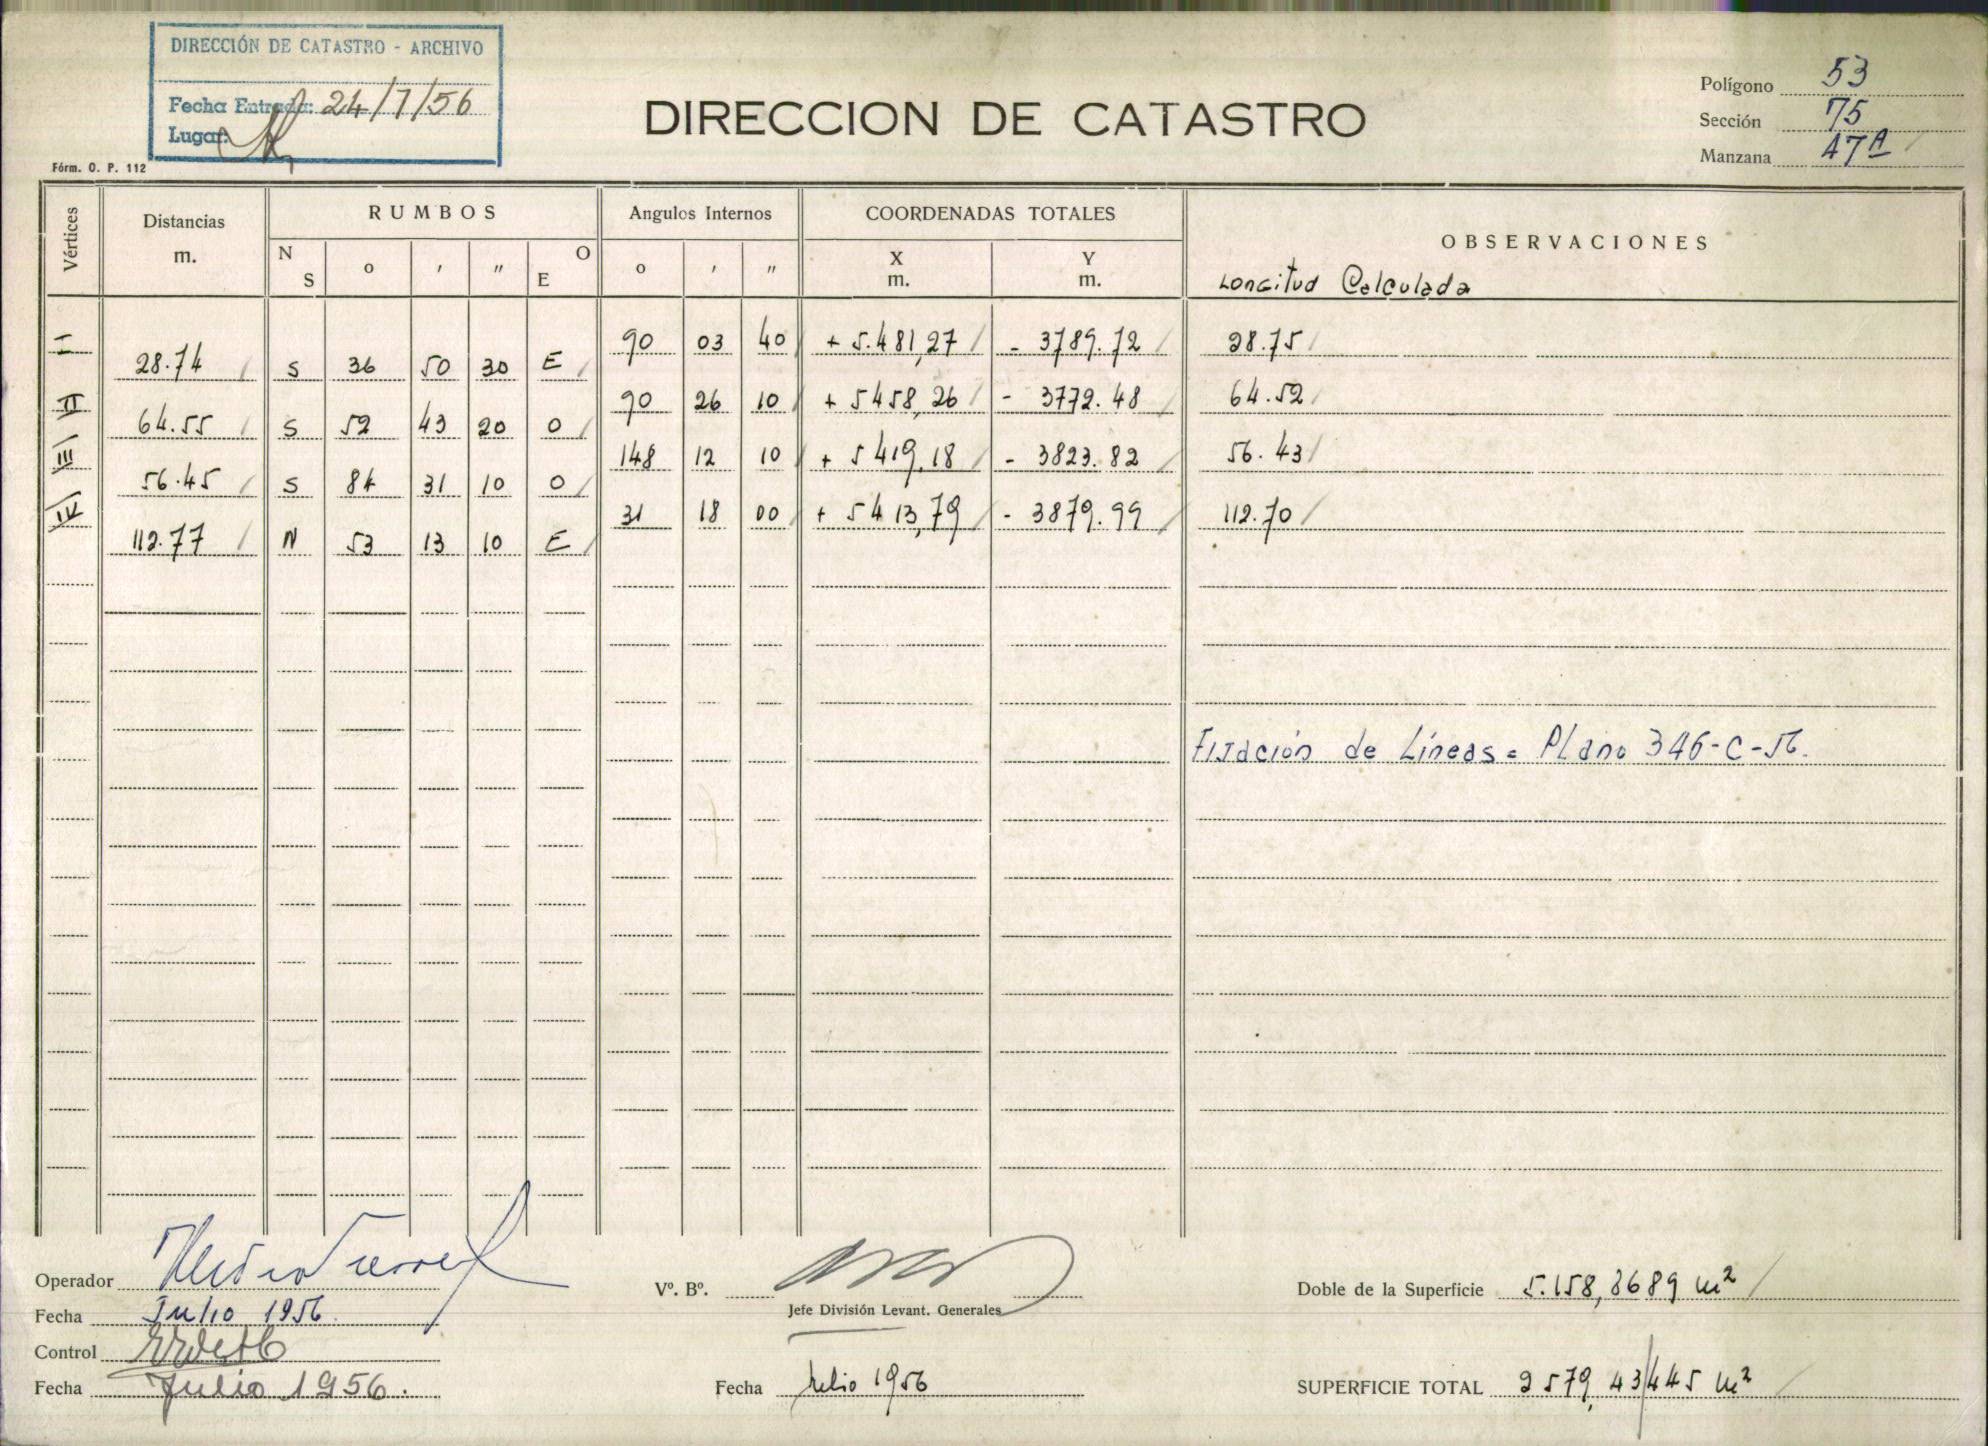 DIRECCIÓN DE CATASTRO - ARCHIVO
Fecha Entrada: 24/7/56
Lugar:
Fórm. O. P. 112
DIRECCION DE CATASTRO
Polígono 53
Sección 75
Manzana 47A
Vértices
Distancias
m.
RUMBOS
N S o ′ ″ O E
Angulos Internos
o ′ ″
COORDENADAS TOTALES
X
m.
Y
m.
OBSERVACIONES
Longitud Calculada
I 90 03 40 + 5.481,27 - 3789.72 28.75
28.74 S 36 50 30 E
II 90 26 10 + 5458,26 - 3772.48 64.52
64.55 S 52 43 20 O
III 148 12 10 + 5419,18 - 3823.82 56.43
56.45 S 84 31 10 O
IV 31 18 00 + 5413,79 - 3879.99 112.70
112.77 N 53 13 10 E
Fijación de Líneas = Plano 346-C-56.
Operador
Fecha Julio 1956.
Control
Fecha Julio 1956.
Vº. Bº.
Jefe División Levant. Generales
Fecha Julio 1956
Doble de la Superficie 5.158,8689 m²
SUPERFICIE TOTAL 2579,43445 m²